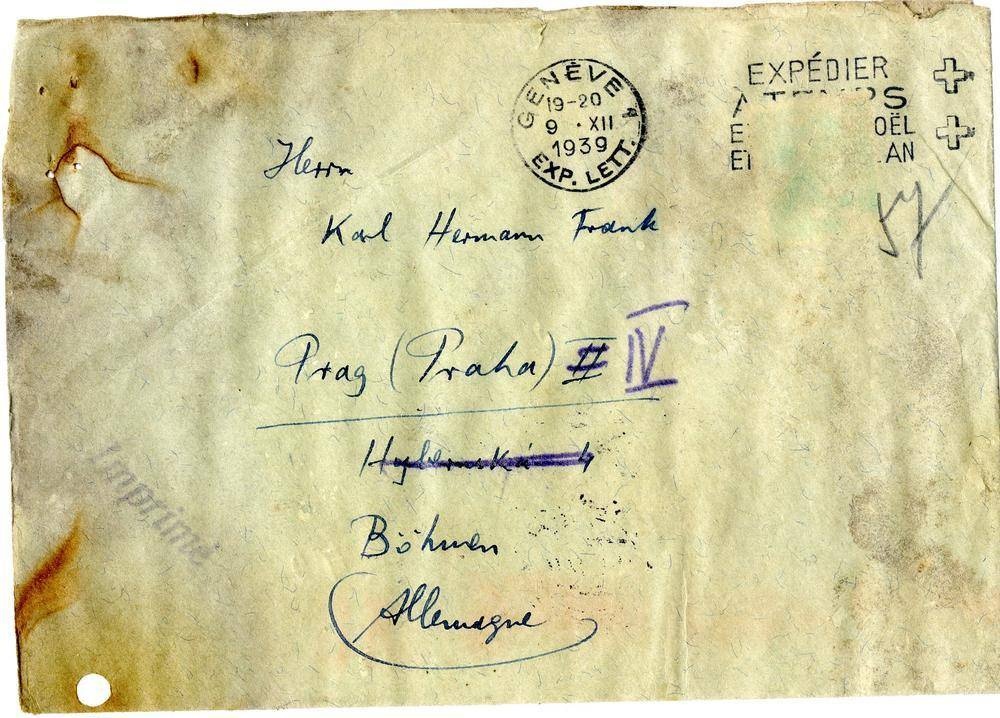 GENÈVE 1
19-20
9 · XII
1939
EXP. LETT.
EXPÉDIER
A TEMPS
E OËL
E AN
57
Herrn
Karl Hermann Frank
Prag (Praha) II IV
Hybernská 4
Böhmen
(Allemagne)
Imprimé